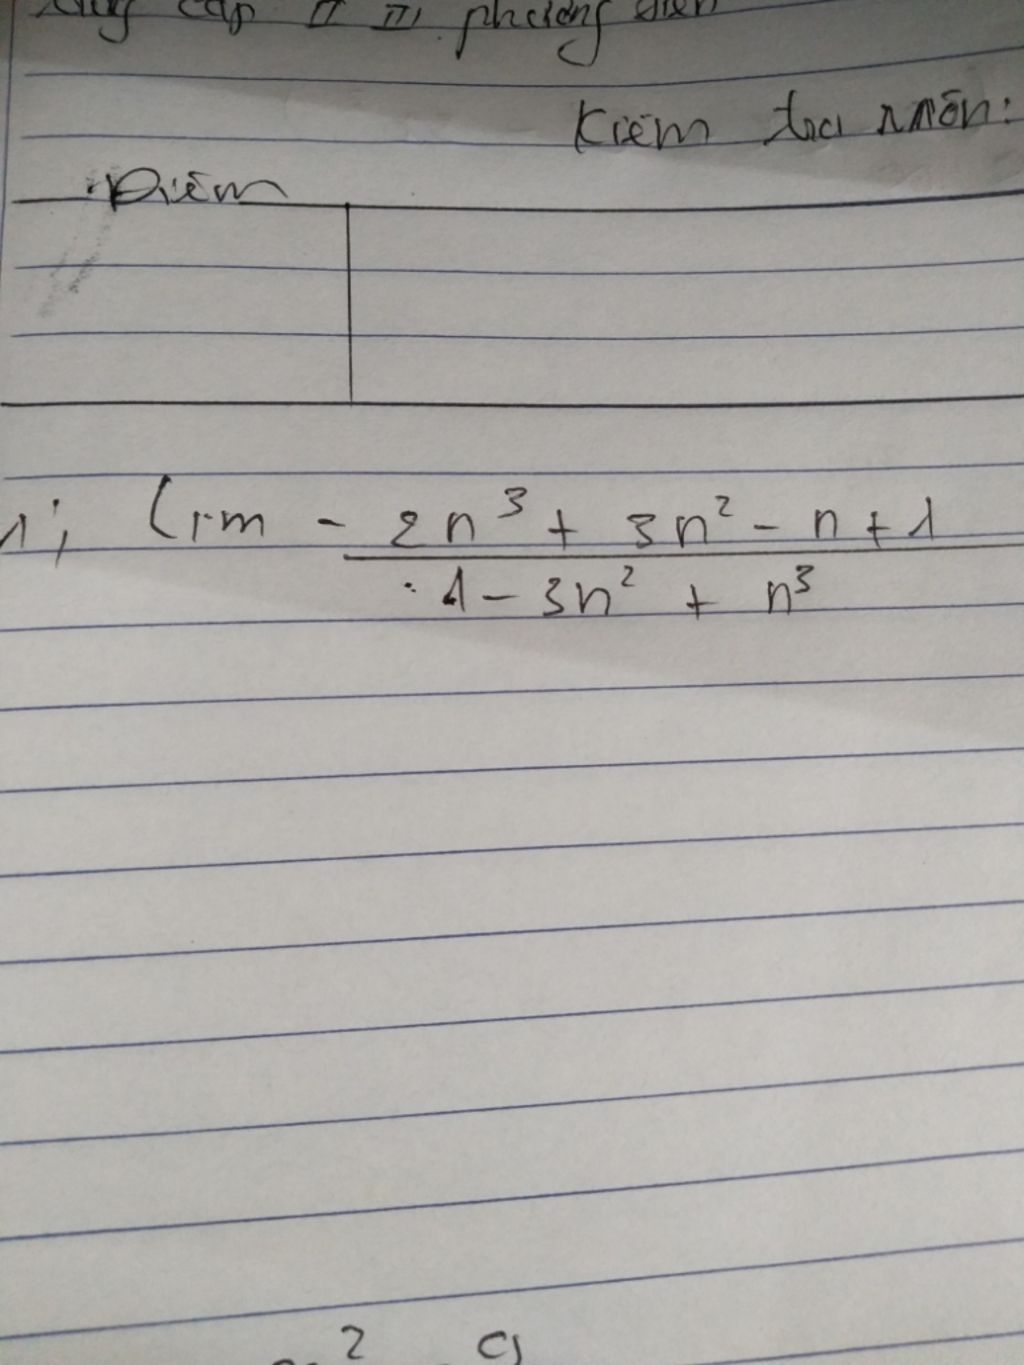 cấp II III phương
Kiểm tra môn:
Điểm
1; Lim - 2n³ + 3n² - n + 1
1 - 3n² + n³